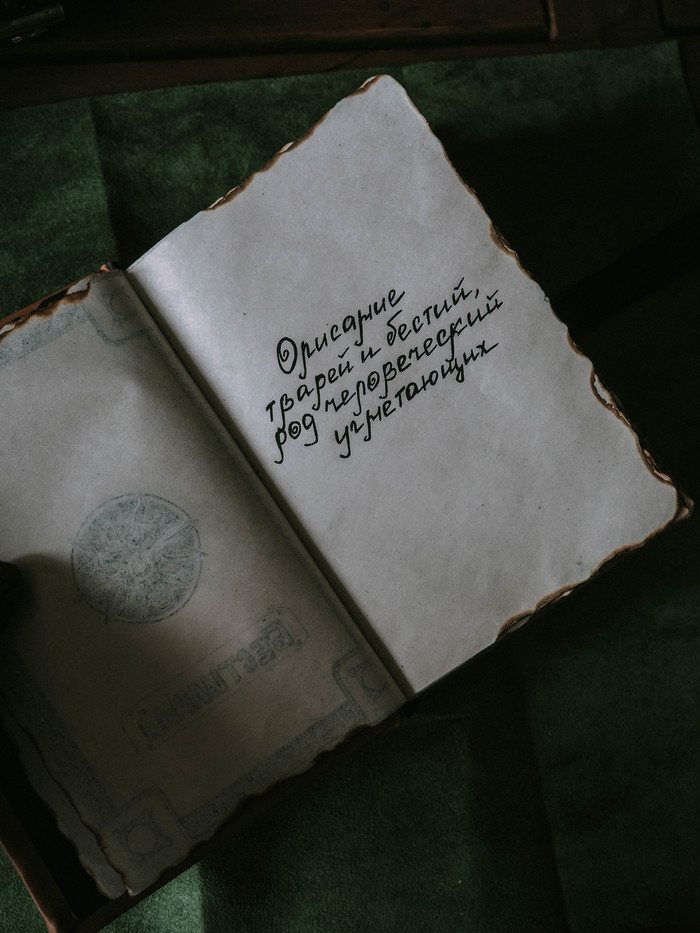 Описание
тварей и бестий,
род человеческий
угнетающих